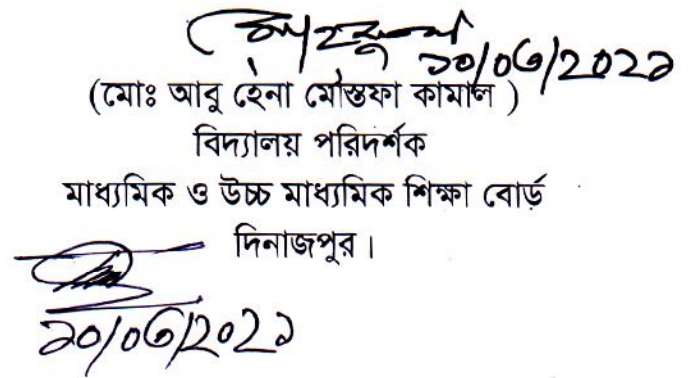 ১০/০৩/২০২১
(মোঃ আবু হেনা মোস্তফা কামাল )
বিদ্যালয় পরিদর্শক
মাধ্যমিক ও উচ্চ মাধ্যমিক শিক্ষা বোর্ড
দিনাজপুর।
১০/০৩/২০২১